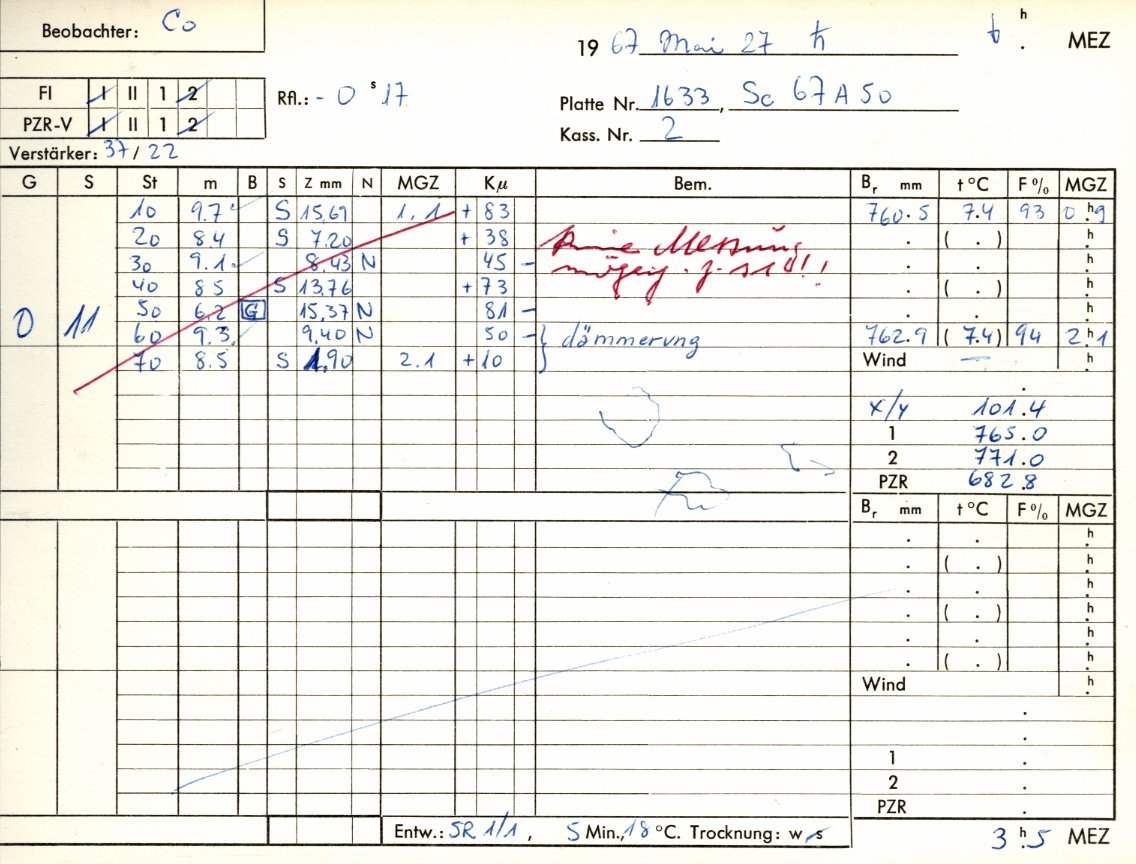 Beobachter: Co
19 67 Mai 27 ♄ h . MEZ
FI I II 1 2 Rfl.: - 0 s 17
PZR-V I II 1 2
Platte Nr. 1633, Sc 67 A 50
Kass. Nr. 2
Verstärker: 37/22
G S St m B S Z mm N MGZ Kμ Bem. Br mm t °C F% MGZ
10 9.7 S 15.69 1.1 + 83 760.5 7.4 93 0 h 9
20 8.4 S 7.20 + 38 keine Messung . ( . ) . h
30 9.1 8.43 N 45 - . . . h
40 8.5 S 13.76 +73 . ( . ) . h
0 11 50 6.2 G 15.37 N 81 - . . . h
60 9.3 9.40 N 50 - } dämmerung 762.9 ( 7.4 ) 94 2 h 1
70 8.5 S 1.90 2.1 +10 Wind — h
x/y 101.4
1 765.0
2 771.0
PZR 682.8
Br mm t °C F% MGZ
. . . h
. ( . ) . h
. . . h
. ( . ) . h
. . . h
. ( . ) . h
Wind . h
1 .
2 .
PZR .
Entw.: SR 1/1, 5 Min., 18 °C. Trocknung: w s
3 h 5 MEZ